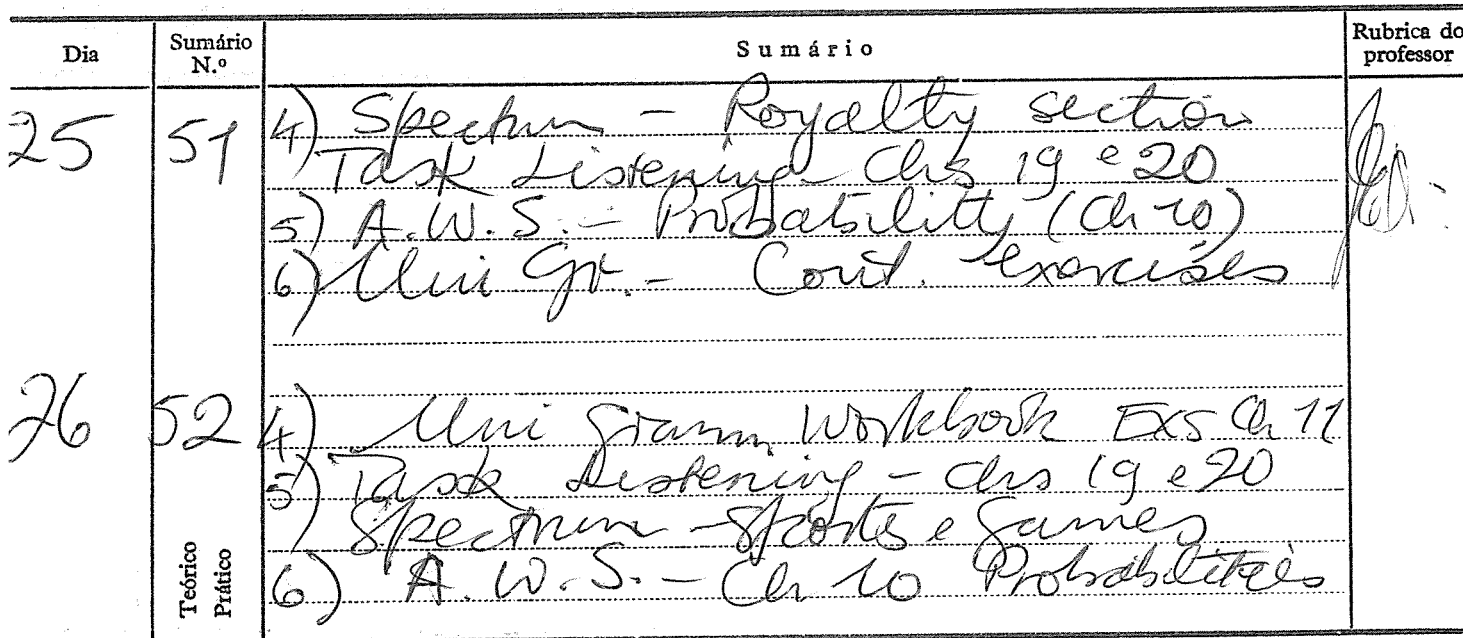 Dia Sumário N.º Sumário Rubrica do professor
25 51 4) Spectrum - Royalty section
Task Listening - Chs 19 e 20
5) A.W.S. - Probability (Ch 10)
6) Uni Gr. - Cont. exercises
26 52 4) Uni Gramm. Workbook Exs Ch 11
5) Task Listening - Chs 19 e 20
Spectrum - Sports e Games
6) A.W.S. - Ch 10 Probabilities
Teórico
Prático